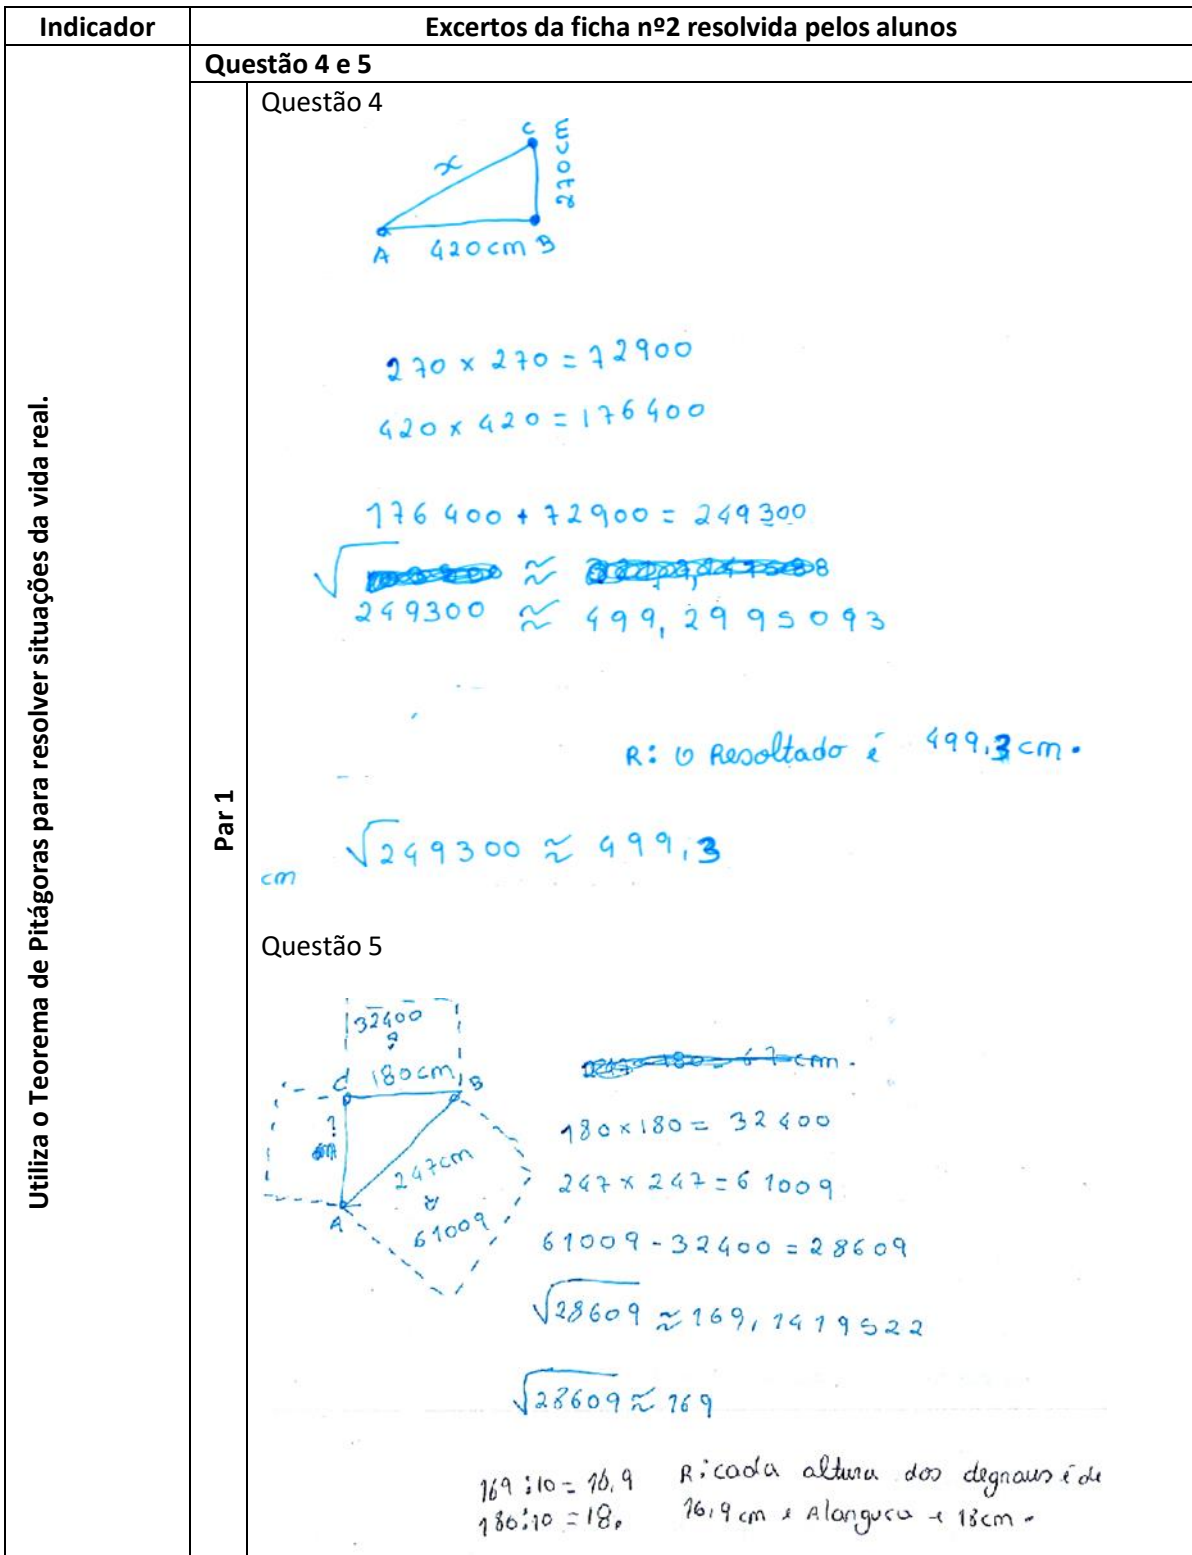 Indicador
Excertos da ficha nº2 resolvida pelos alunos
Utiliza o Teorema de Pitágoras para resolver situações da vida real.
Questão 4 e 5
Par 1
Questão 4
x
C
270cm
A 420cm B
270 x 270 = 72900
420 x 420 = 176400
176400 + 72900 = 249300
√
≈
249300 ≈ 499,2995093
R: O Resoltado é 499,3 cm.
√249300 ≈ 499,3
cm
Questão 5
32400
C 180cm B
?
247cm
A
61009
247 - 180 = 67 cm.
180 x 180 = 32400
247 x 247 = 61009
61009 - 32400 = 28609
√28609 ≈ 169,1419522
√28609 ≈ 169
169:10 = 16,9
180:10 = 18,
R: cada altura dos degraus é de
16,9 cm e A largura e 18cm.